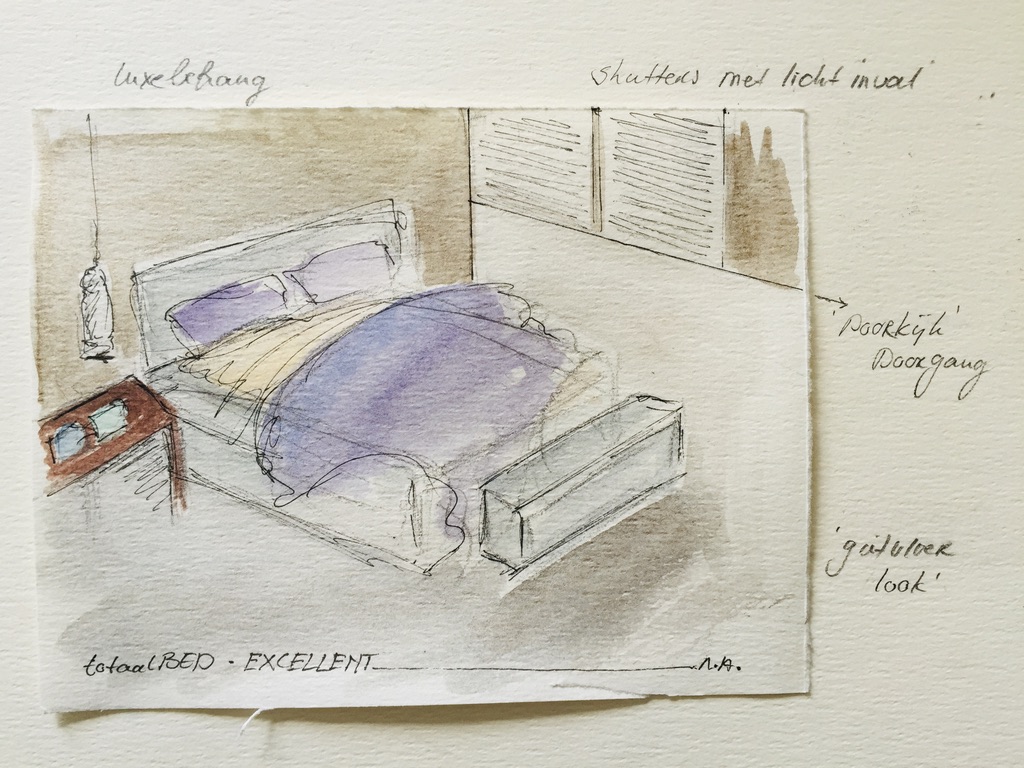 luxe behang
shutters met licht inval
'Doorkijk'
Doorgang
'gietvloer
look'
totaalBED · EXCELLENT
N.A.